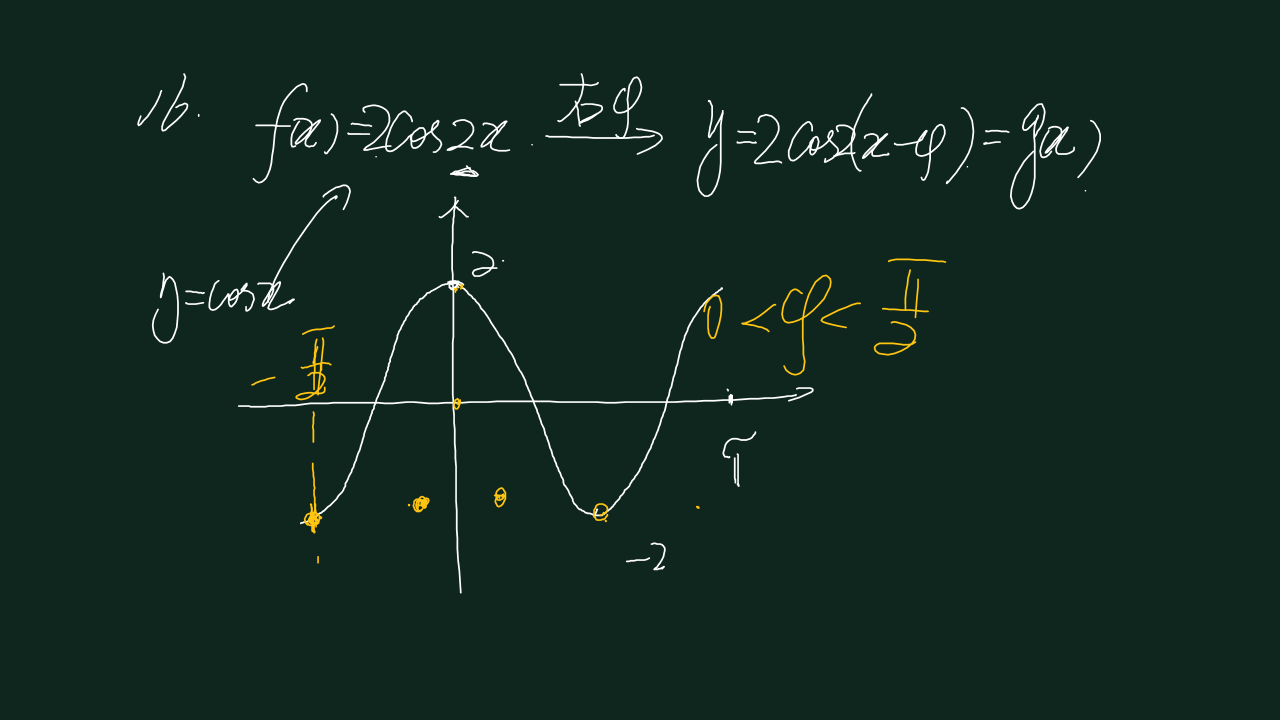 16. f(x)=2cos2x 右φ y=2cos2(x-φ)=g(x)
2
y=cosx
0<φ<π/2
-π/2
π
-2